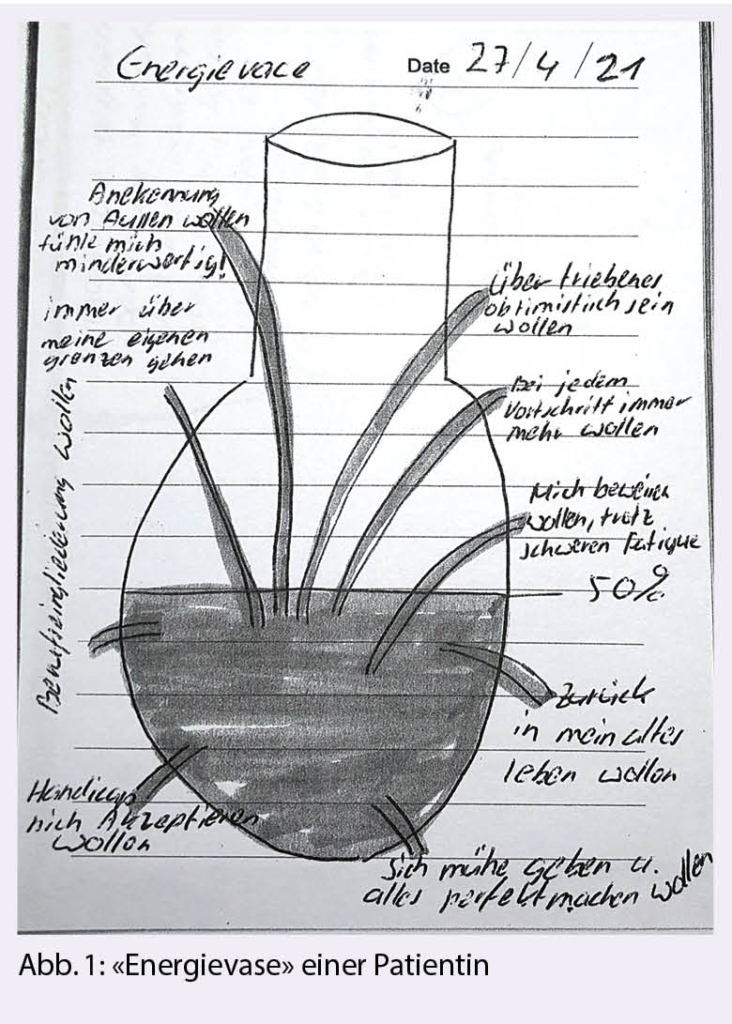 Energievace
Date 27/4/21
Anekennung
von Außen wollen
fühle mich
minderwertig!
immer über
meine eigenen
grenzen gehen
Berufseingliederung wollen
Handicap
nich Akzeptieren
wollen
Übertriebenes
optimistisch sein
wollen
Bei jedem
Vortschritt immer
mehr wollen
Mich beweisen
wollen, trotz
schweren Fatique
50%
Zurück
in mein altes
leben wollen
Sich mühe geben u.
alles perfekt machen wollen
Abb. 1: «Energievase» einer Patientin